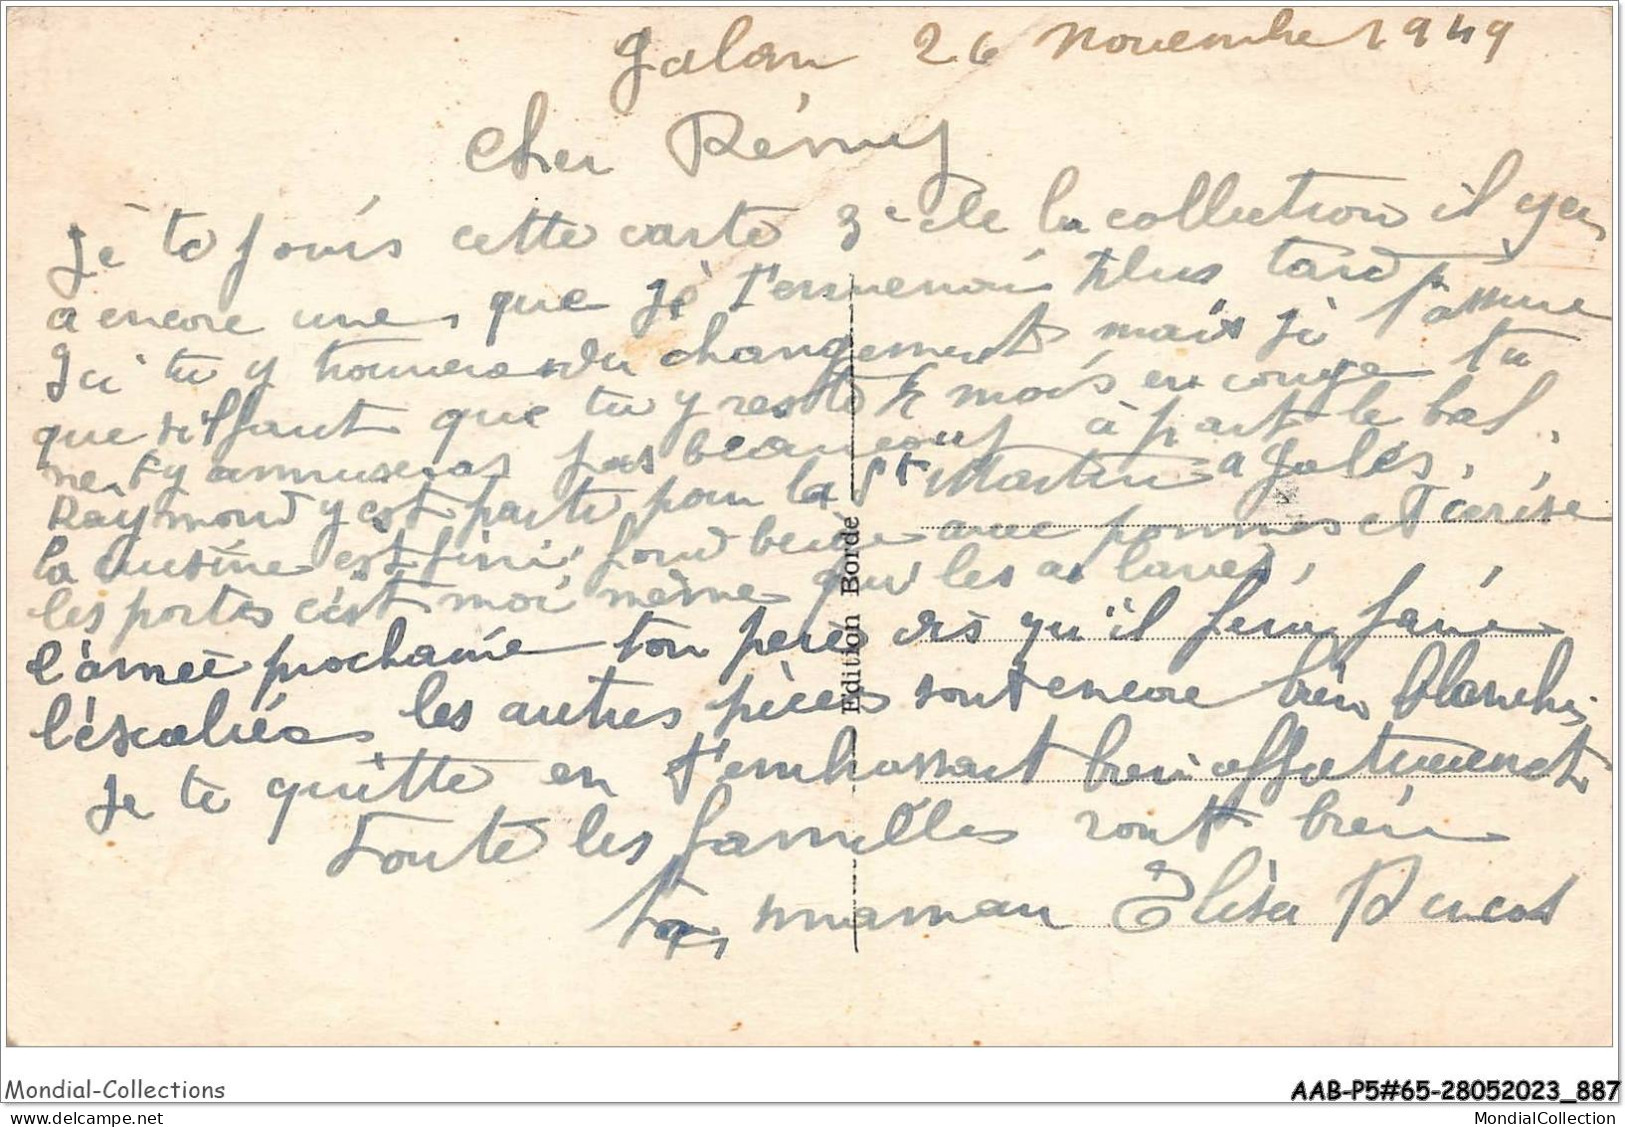 Galan 26 Novembre 1949
Cher Rémy
Jè te joins cette carte 3e de la collection il y en
a encore une, que jè t'enverrai plus tard
Ici tu y trouveras du changement mais je t'assure
que s'il faut que tu y reste mois en conge tu
ne t'y amuseras pas beaucoup à part le bal,
Raymond y est parti pour la St Martin a Galés,
la cuisine est fini fond beige avec pommes et cerise
les portes c'est moi même qui les ai lavés,
l'année prochaine ton père dis qu'il fera faire
l'éscaliés les autres pièces sont encore bien blanches
Je te quitte en t'embrassant bien affectueusement
Toute les familles sont bien
Ta maman Elisa Ducos
Edition Borde
Mondial-Collections
AAB-P5#65-28052023_887
www.delcampe.net
MondialCollection